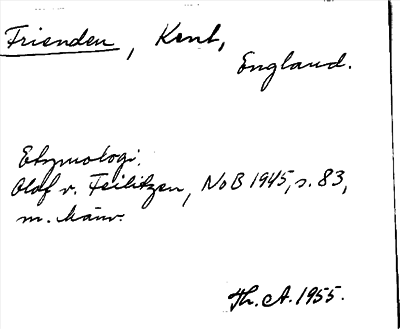 Frienden, Kent,
England.
Etymologi.
Olof v. Feilitzen, NoB 1945, s. 83,
m. hänv.
Th. A. 1955.